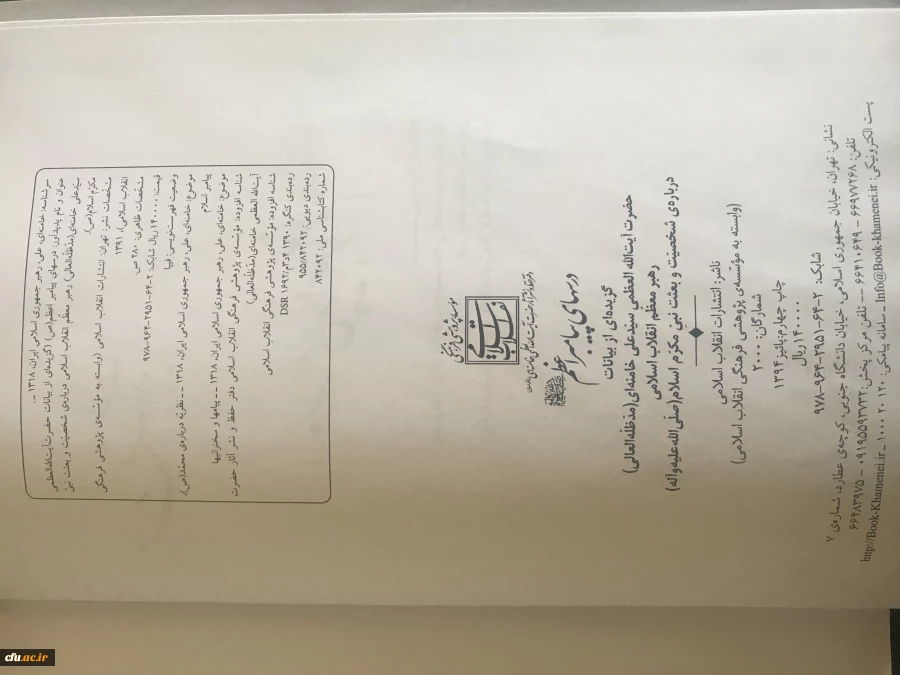 سرشناسه: خامنه‌ای، علی، رهبر جمهوری اسلامی ایران، ۱۳۱۸ - .
عنوان و نام پدیدآور: درسهای پیامبر اعظم(ص) (گزیده‌ای از بیانات حضرت‌آیت‌الله‌العظمی
سیّدعلی خامنه‌ای(مدّظلّه‌العالی) رهبر معظّم انقلاب اسلامی درباره‌ی شخصیّت و بعثت نبیّ
مکرّم اسلام(ص).
مشخصات نشر: تهران: انتشارات انقلاب اسلامی (وابسته به مؤسسه‌ی پژوهشی فرهنگی
انقلاب اسلامی)، ۱۳۹۱
مشخصات ظاهری: ۲۸۰ ص
قیمت: ۱۴۰۰۰۰ریال شابک: ۲-۶۴-۲۹۵۱-۹۶۴-۹۷۸
وضعیت فهرست‌نویسی: فیپا
موضوع: خامنه‌ای، علی، رهبر جمهوری اسلامی ایران، ۱۳۱۸ - - نظریه درباره‌ی محمّد(ص)،
پیامبر اسلام
موضوع: خامنه‌ای، علی، رهبر جمهوری اسلامی ایران، ۱۳۱۸ - - پیامها و سخنرانیها
شناسه افزوده: مؤسسه‌ی پژوهشی فرهنگی انقلاب اسلامی دفتر حفظ و نشر آثار حضرت
آیت‌الله العظمی خامنه‌ای(مدّظلّه‌العالی)
شناسه افزوده: مؤسسه‌ی پژوهشی فرهنگی انقلاب اسلامی
رده‌بندی کنگره: ۱۳۹۰ ۴د۳م/DSR ۱۶۹۲
رده‌بندی دیویی: ۹۵۵/۸۴۲۰۹۲
شماره کتابشناسی ملی: ۸۴۲۰۹۲
مؤسسه پژوهشی فرهنگی
انقلاب اسلامی
درسهای پیامبر اعظم
گزیده‌ای از بیانات
حضرت آیت‌الله العظمی سیّدعلی خامنه‌ای(مدّظلّه‌العالی)
رهبر معظّم انقلاب اسلامی
درباره‌ی شخصیّت و بعثت نبیّ مکرّم اسلام(صلّی‌الله‌علیه‌وآله)
ناشر: انتشارات انقلاب اسلامی
(وابسته به مؤسسه‌ی پژوهشی فرهنگی انقلاب اسلامی)
شمارگان: ۲۰۰۰
چاپ چهارم: پائیز ۱۳۹۴
۱۴۰۰۰۰ ریال
شابک: ۲-۶۴-۲۹۵۱-۹۶۴-۹۷۸
نشانی: تهران، خیابان جمهوری اسلامی، خیابان دانشگاه جنوبی، کوچه‌ی عطارد، شماره‌ی ۷
تلفن: ۶۶۹۷۷۲۶۸ - ۶۶۴۱۰۶۴۹ - تلفن مرکز پخش: ۰۹۱۹۵۵۹۳۷۳۲ - ۶۶۴۸۳۹۷۵
پست الکترونیکی: Info@Book-khamenei.ir - سامانه پیامکی: ۱۰۰۰۲۰۱۲۰ - http://Book-Khamenei.ir
cfu.ac.ir